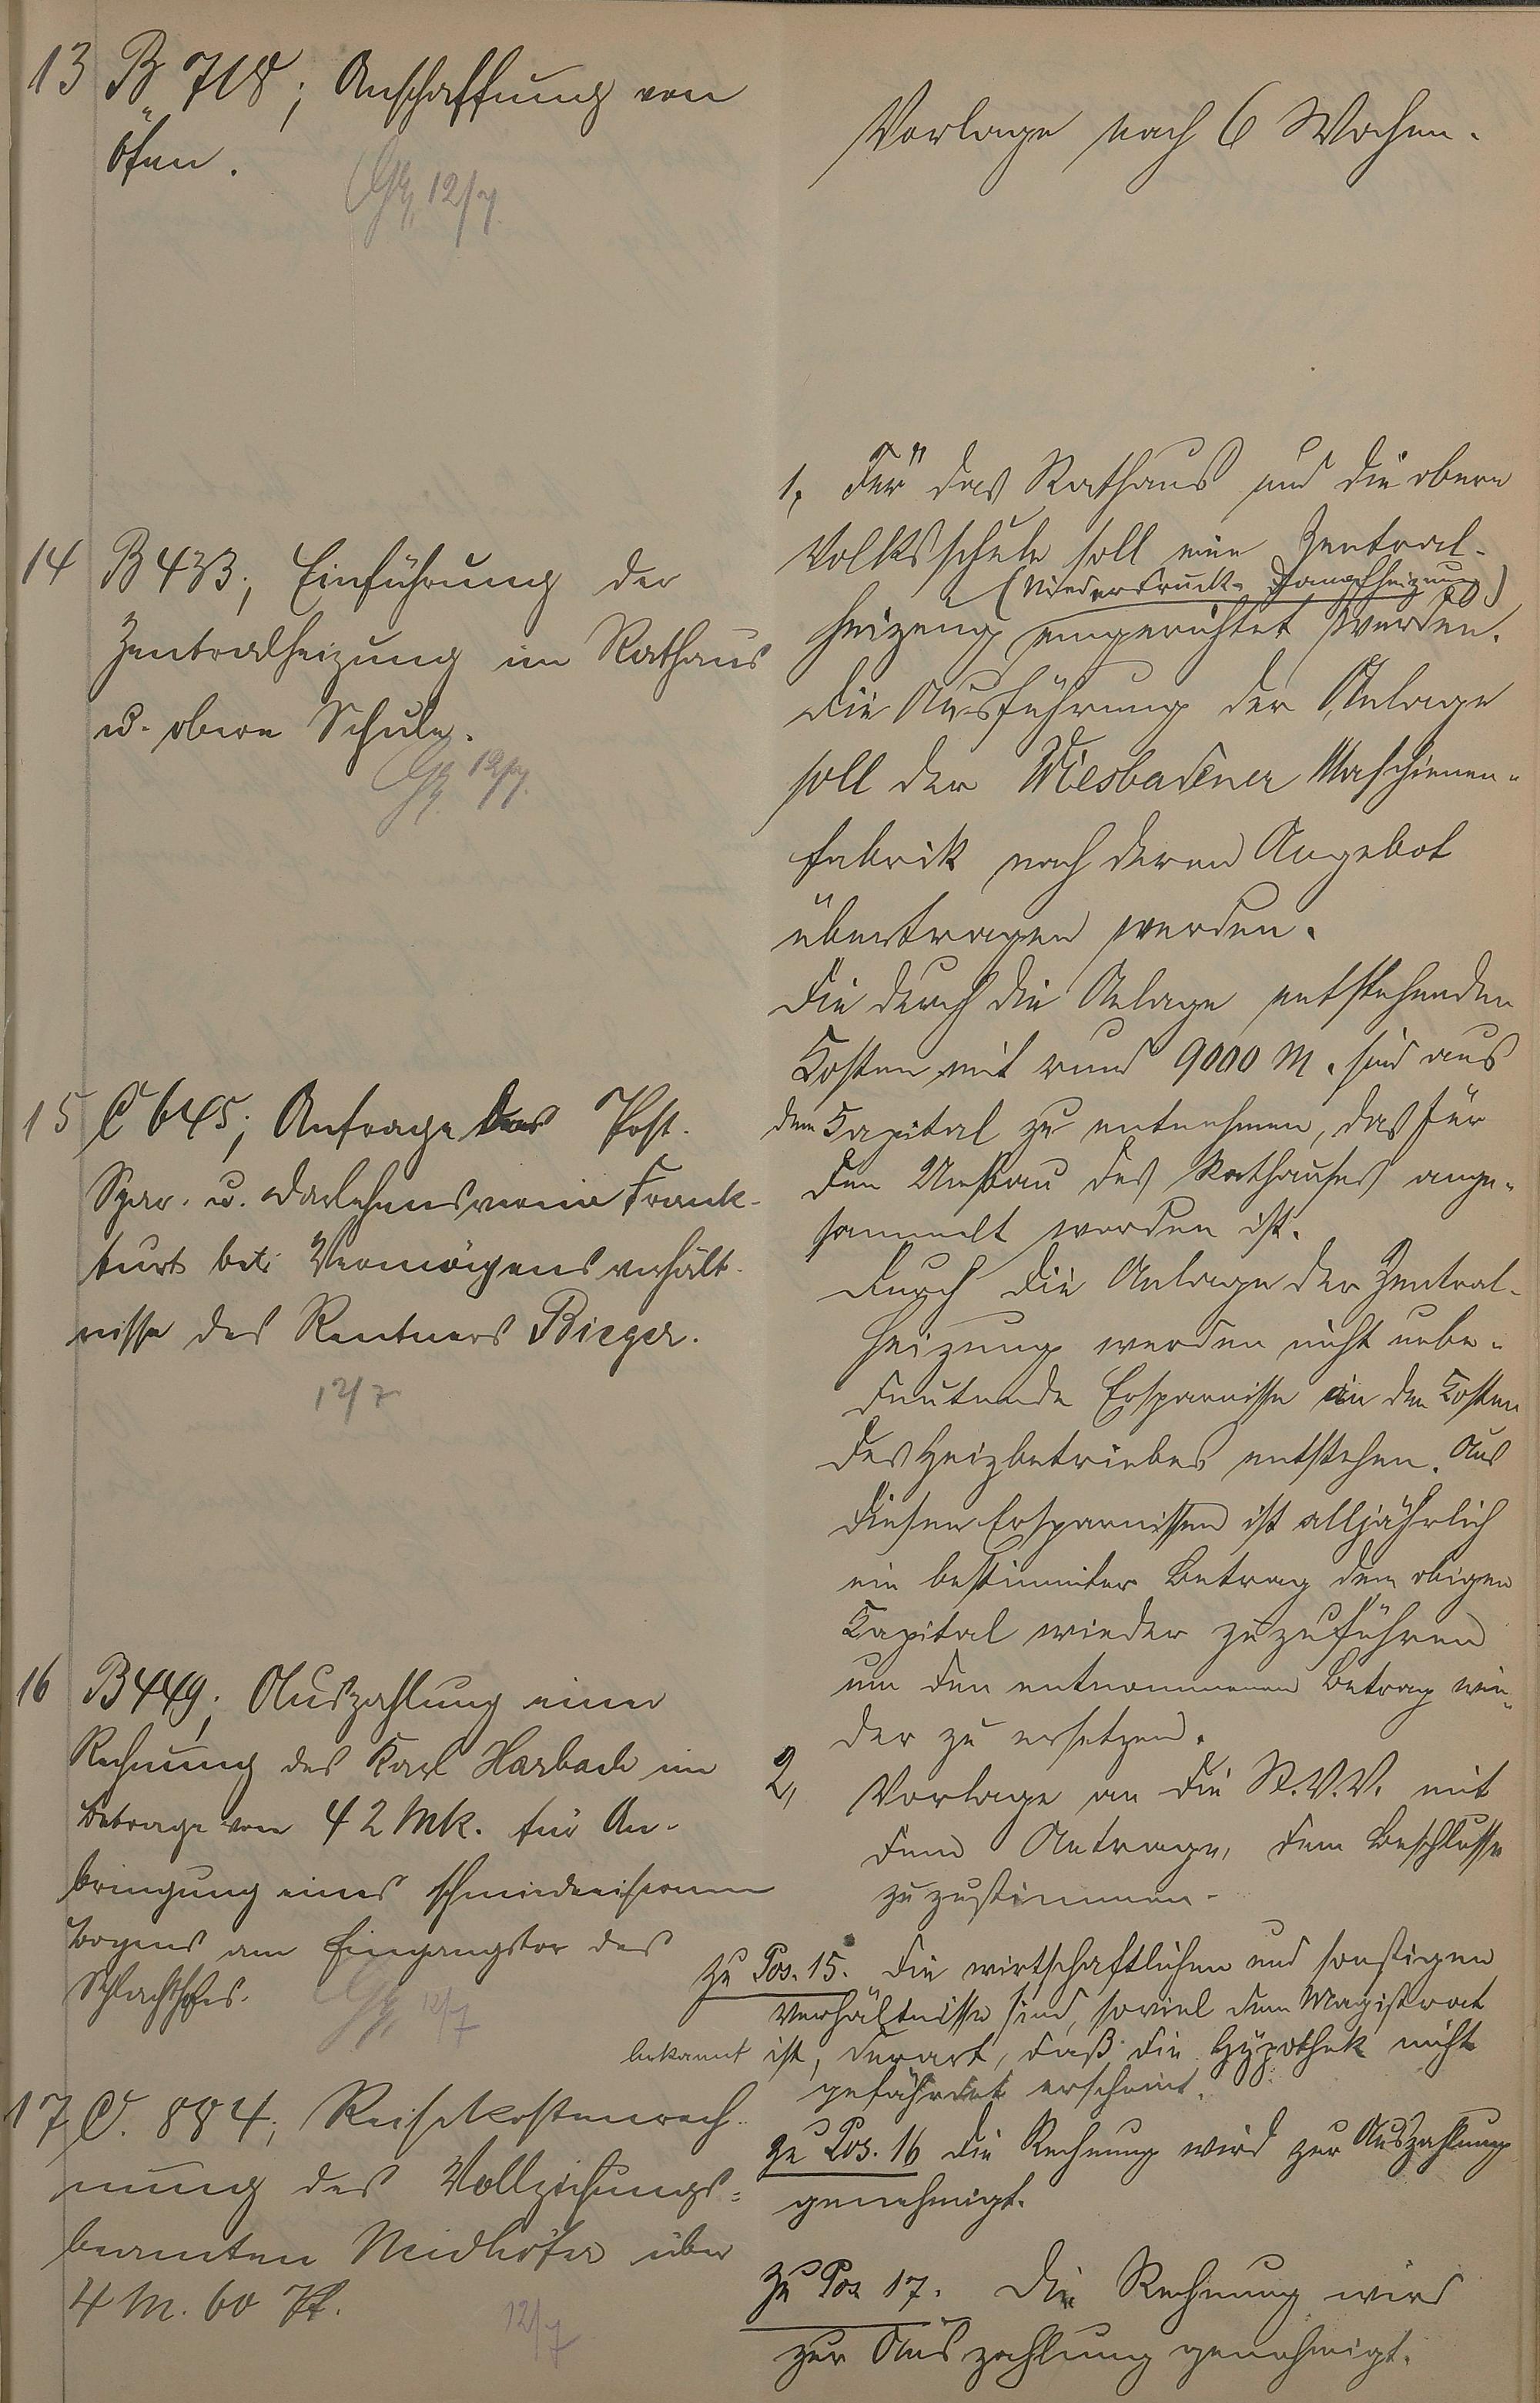 13 B 718; Anschaffung von
Öfen.
12/7.
Vorlage nach 6 Wochen.
14 B 433; Einführung der
Zentralheizung im Rathaus
u. obere Schule.
12/7.
1, Für das Rathaus und die obere
Volksschule soll eine Zentral-
(Niederdruck-Dampfheizung)
heizung eingerichtet werden.
Die Ausführung der Anlage
soll der Wiesbadener Maschienen-
fabrik nach deren Angebot
übertragen werden.
Die durch die Anlage entstehenden
Kosten mit rund 9000 M. sind aus
dem Kapital zu entnehmen, das für
den Umbau des Rathauses ange-
sammelt worden ist.
Durch die Anlage der Zentral-
heizung werden nicht unbe-
deutende Ersparnisse in den Kosten
des Heizbetriebes entstehen. Aus
diesen Ersparnissen ist alljährlich
ein bestimmter Betrag dem obigen
Kapital wieder zuzuführen
um den entnommenen Betrag wie-
der zu ersetzen.
2, Vorlage an die St.V.V. mit
dem Antrage, dem Beschlusse
zuzustimmen.
15 C 645; Anfrage des Post-
Spar- u. Darlehensverein Frank-
furt betr. Vermögensverhält-
nisse des Rentners Bieger.
12/7
16 B 449; Auszahlung einer
Rechnung des Karl Harbach im
Betrage von 42 Mk. für An-
bringung eines schmiedeeisernen
Bogens am Eingangstor des
Schlachthofes.
12/7
zu Pos. 15. Die wirtschaftlichen und sonstigen
Verhältnisse sind, soviel dem Magistrat
bekannt ist, derart, daß die Hypothek nicht
gefährdet erscheint.
zu Pos. 16 Die Rechnung wird zur Auszahlung
genehmigt.
17 C. 884; Reisekostenrech-
nung des Vollziehungs-
beamten Neidhöfer über
4 M. 60 Pf.
12/7
zu Pos 17. Die Rechnung wird
zur Auszahlung genehmigt.